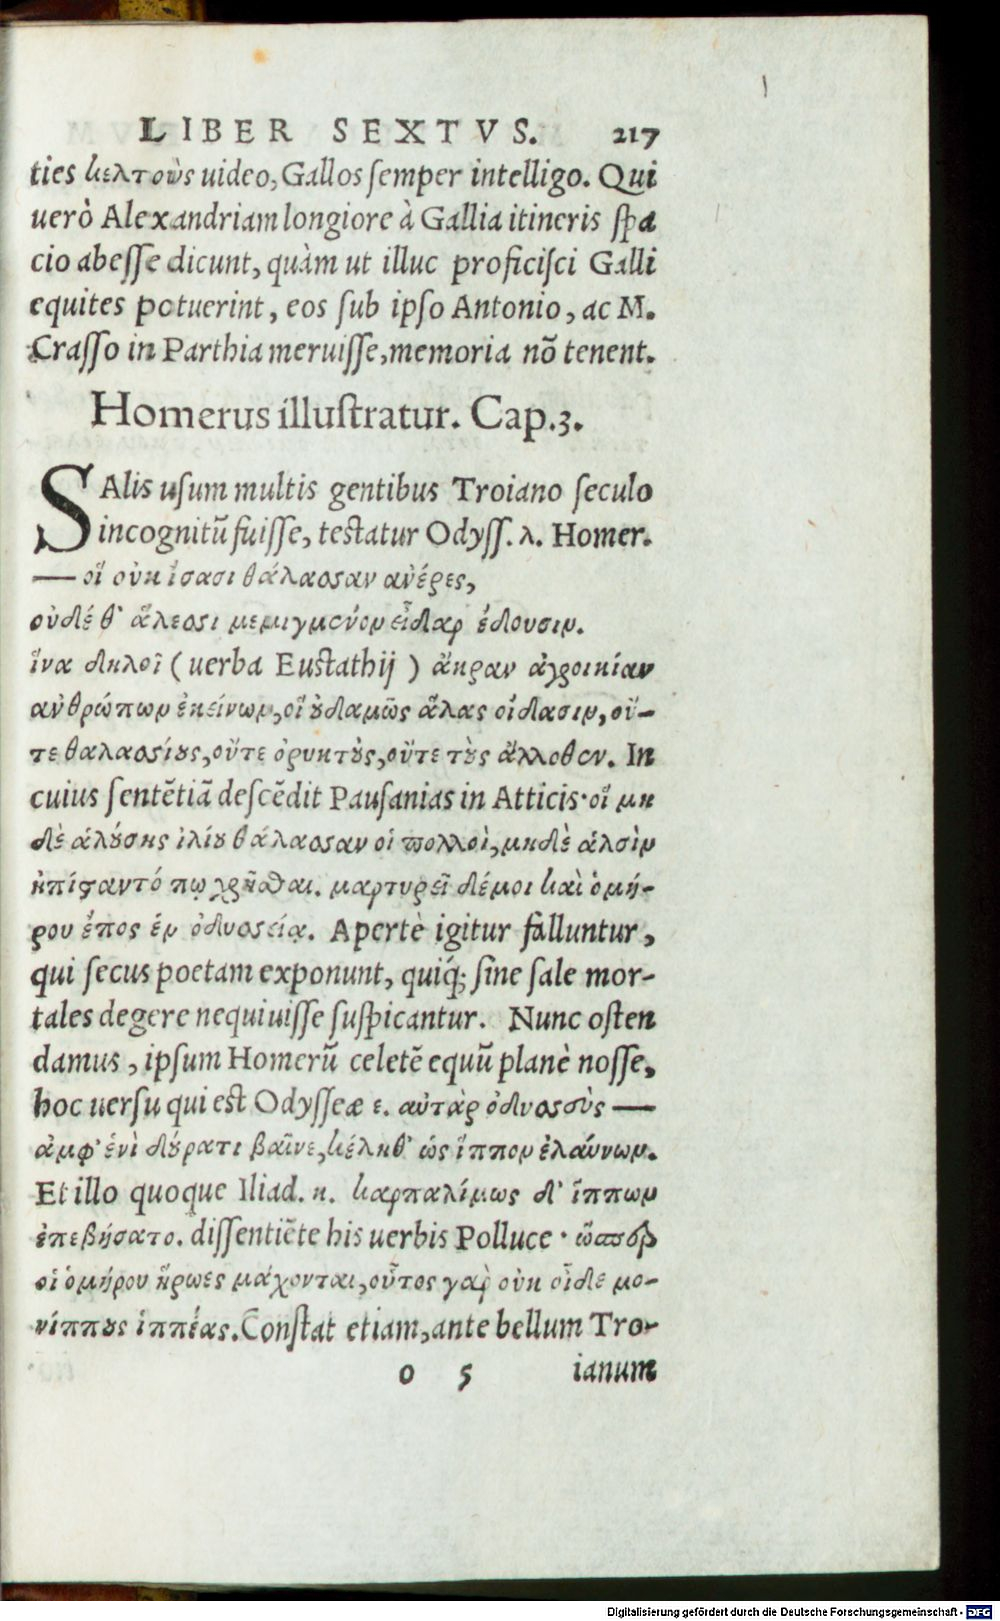 LIBER SEXTVS. 217
ties κελτοὺς uideo, Gallos semper intelligo. Qui
uerò Alexandriam longiore à Gallia itineris spa
cio abesse dicunt, quàm ut illuc proficisci Galli
equites potuerint, eos sub ipso Antonio, ac M.
Crasso in Parthia meruisse, memoria nõ tenent.
Homerus illustratur. Cap.3.
SAlis usum multis gentibus Troiano seculo
incognitũ fuisse, testatur Odyss. λ. Homer.
— οἳ οὐκ ἴσασι θάλασσαν ἀνέρες,
οὐδέ θ' ἅλεσσι μεμιγμένον εἶδαρ ἔδουσιν.
ἵνα δηλοῖ (uerba Eustathij) ἄκραν ἀγροικίαν
ἀνθρώπων ἐκείνων, οἳ οὐδαμῶς ἅλας οἴδασιν, οὔ-
τε θαλασσίους, οὔτε ὀρυκτοὺς, οὔτε τοὺς ἄλλοθεν. In
cuius sentẽtiã descẽdit Pausanias in Atticis· οἳ μη
δὲ ἁλούσης ἰλίου θάλασσαν οἱ πολλοὶ, μηδὲ ἁλσὶν
ἠπίσταντό πω χρῆσθαι. μαρτυρεῖ δέ μοι καὶ ὁμή-
ρου ἔπος ἐν ὀδυσσείᾳ. Apertè igitur falluntur,
qui secus poetam exponunt, quiq́; sine sale mor-
tales degere nequiuisse suspicantur. Nunc osten
damus, ipsum Homerũ celetẽ equũ planè nosse,
hoc uersu qui est Odysseæ ε. αὐτὰρ ὀδυσσεὺς —
ἀμφ' ἑνὶ δούρατι βαῖνε, κέληθ' ὡς ἵππον ἐλαύνων.
Et illo quoque Iliad. κ. καρπαλίμως δ' ἵππων
ἐπεβήσατο. dissentiẽte his uerbis Polluce· ὥσπερ
οἱ ὁμήρου ἥρωες μάχονται, οὗτος γὰρ οὐκ οἶδε μο-
νίππους ἱππέας. Constat etiam, ante bellum Tro-
o 5 ianum
Digitalisierung gefördert durch die Deutsche Forschungsgemeinschaft - DFG